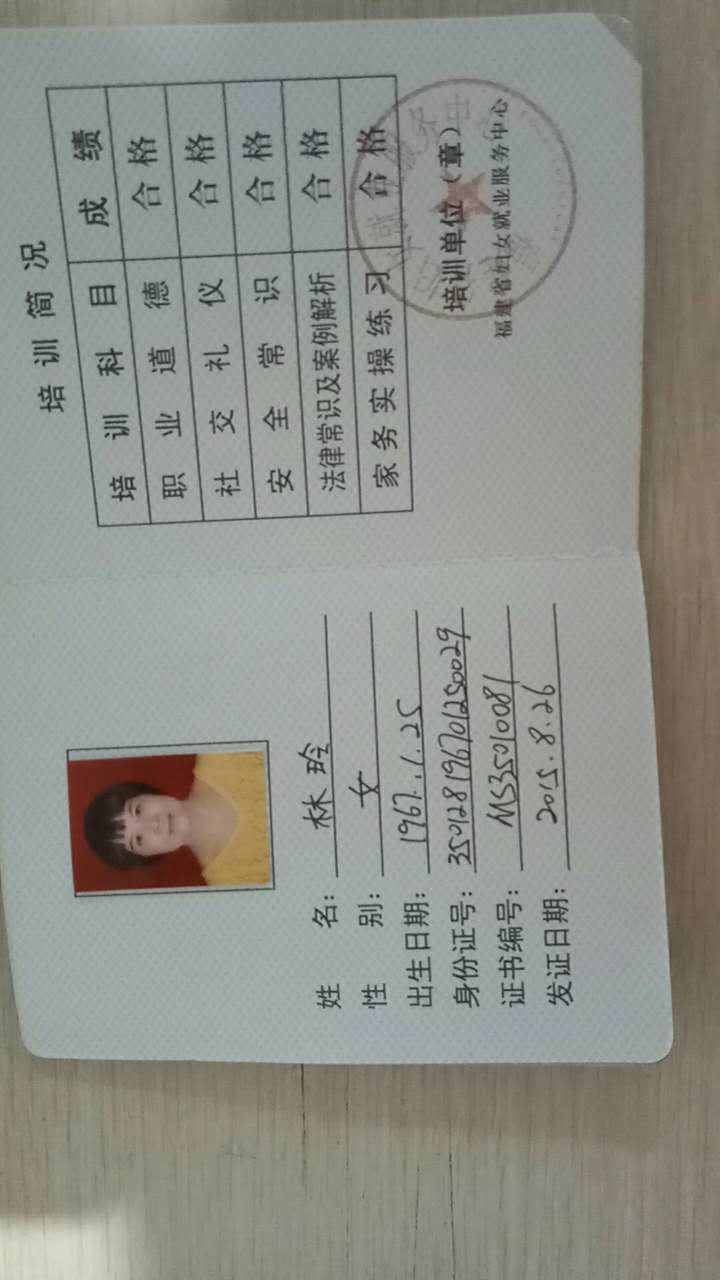 姓名：林玲
性别：女
出生日期：1967.1.25
身份证号：350128196701250029
证书编号：MS35010081
发证日期：2015.8.26
培训简况
培训科目 成绩
职业道德 合格
社交礼仪 合格
安全常识 合格
法律常识及案例解析 合格
家务实操练习 合格
培训单位（章）
福建省妇女就业服务中心